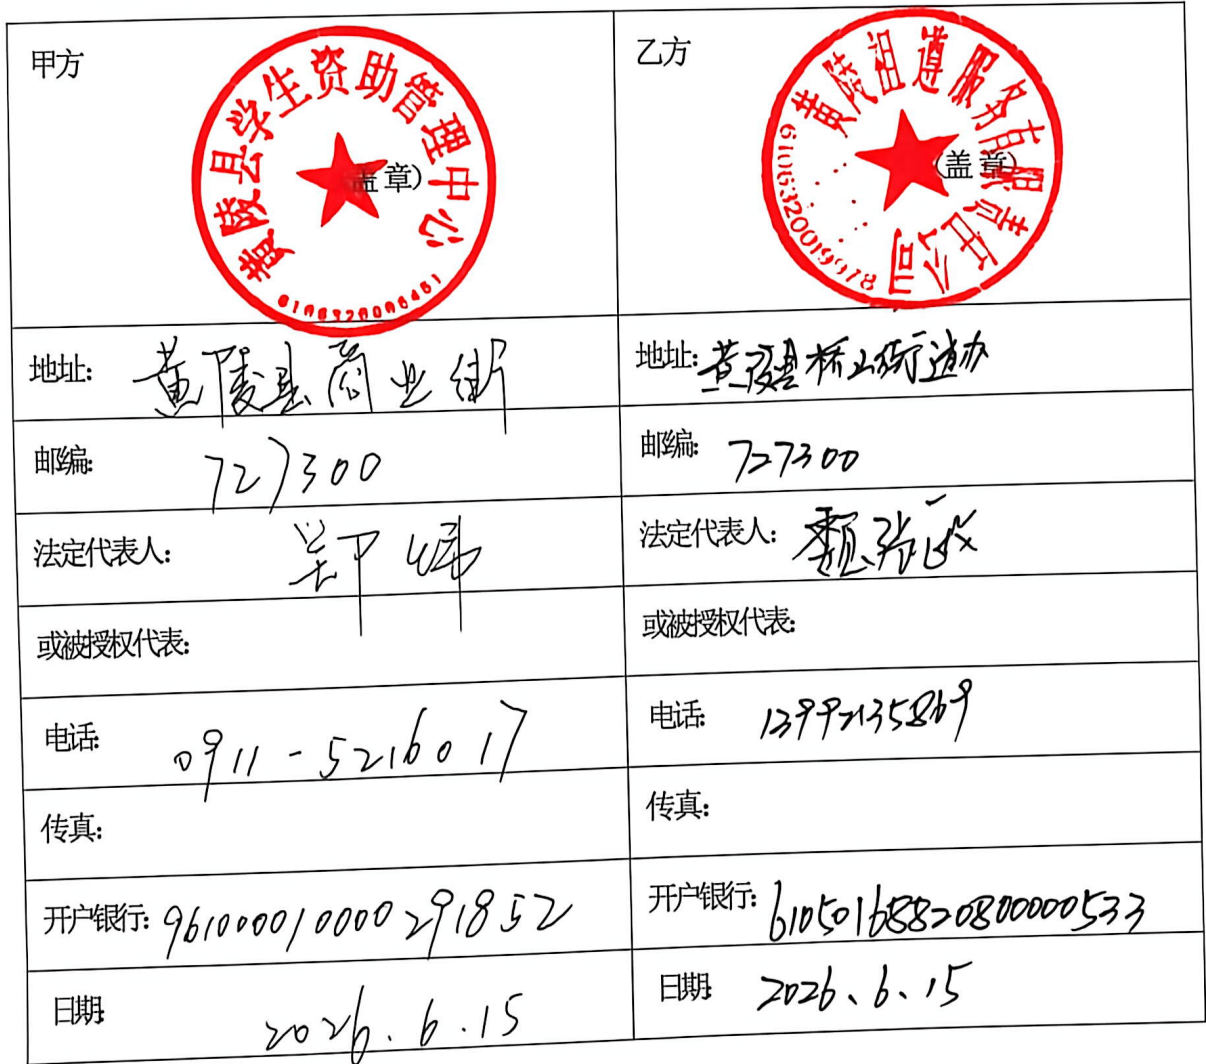 甲方
黄陵县学生资助管理中心
(盖章)
6106320006451
乙方
黄陵祖遵服务有限责任公司
(盖章)
6106320019978
地址: 黄陵县商业街
地址: 黄陵县桥山街道办
邮编: 727300
邮编: 727300
法定代表人: 郑炜
法定代表人: 魏
或被授权代表:
或被授权代表:
电话: 0911-5216017
电话: 13992135869
传真:
传真:
开户银行: 961000010000291852
开户银行: 61050168820800000533
日期: 2026.6.15
日期: 2026、6、15